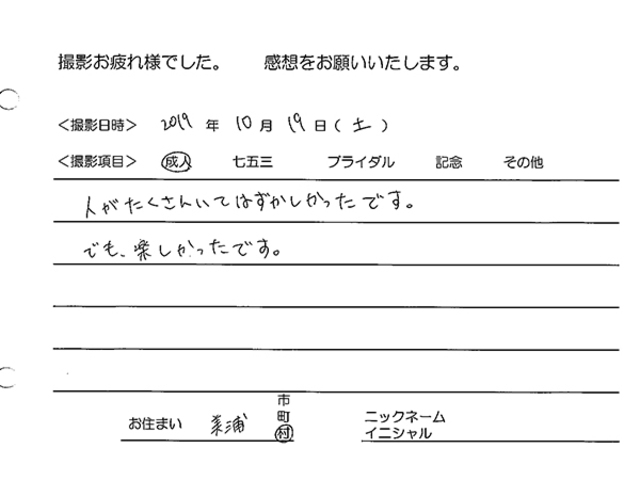 撮影お疲れ様でした。 感想をお願いいたします。
<撮影日時> 2019 年 10 月 19 日(土)
<撮影項目> 成人 七五三 ブライダル 記念 その他
人がたくさんいてはずかしかったです。
でも、楽しかったです。
お住まい 美浦 市町村
ニックネーム
イニシャル